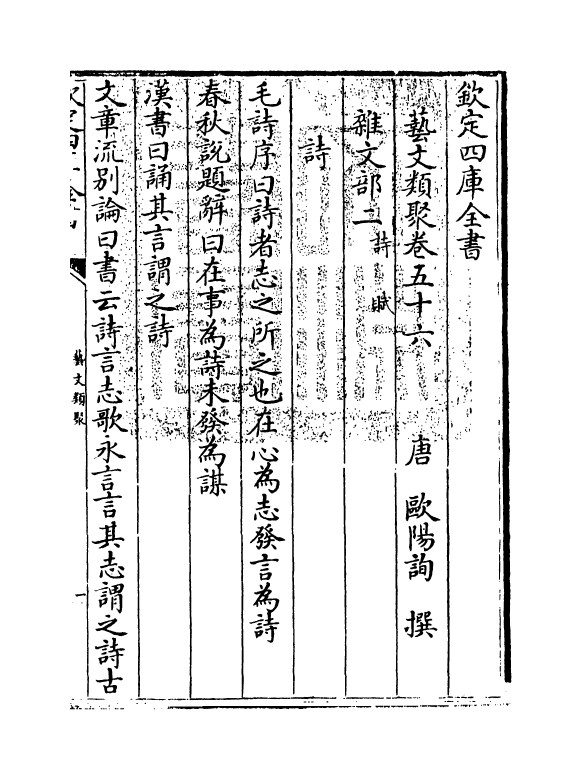 欽定四庫全書
藝文類聚卷五十六　唐　歐陽詢　撰
雜文部二　詩　賦
詩
毛詩序曰詩者志之所之也在心為志發言為詩
春秋說題辭曰在事為詩未發為謀
漢書曰誦其言謂之詩
文章流別論曰書云詩言志歌永言言其志謂之詩古
藝文類聚
一